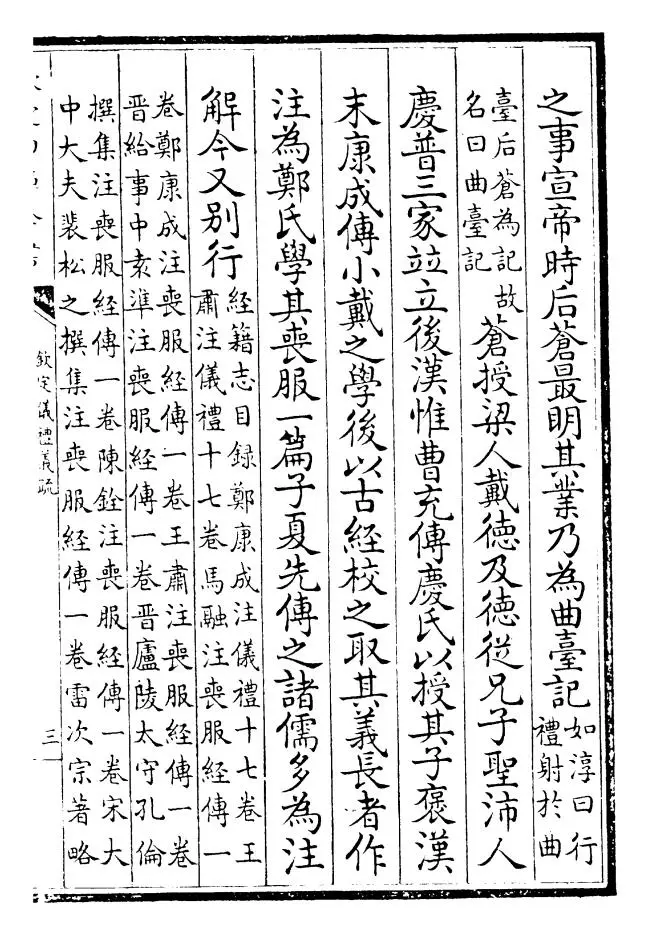 之事宣帝時后蒼最明其業乃為曲臺記
如淳曰行
禮射於曲
臺后蒼為記故
名曰曲臺記
蒼授梁人戴德及德從兄子聖沛人
慶普三家竝立後漢惟曹充傳慶氏以授其子褒漢
末康成傳小戴之學後以古經校之取其義長者作
注為鄭氏學其喪服一篇子夏先傳之諸儒多為注
解今又別行
經籍志目録鄭康成注儀禮十七卷王
肅注儀禮十七卷馬融注喪服經傳一
卷鄭康成注喪服經傳一卷王肅注喪服經傳一卷
晉給事中袁準注喪服經傳一卷晉廬陵太守孔倫
撰集注喪服經傳一卷陳銓注喪服經傳一卷宋大
中大夫裴松之撰集注喪服經傳一卷雷次宗著略
欽定儀禮義疏
三